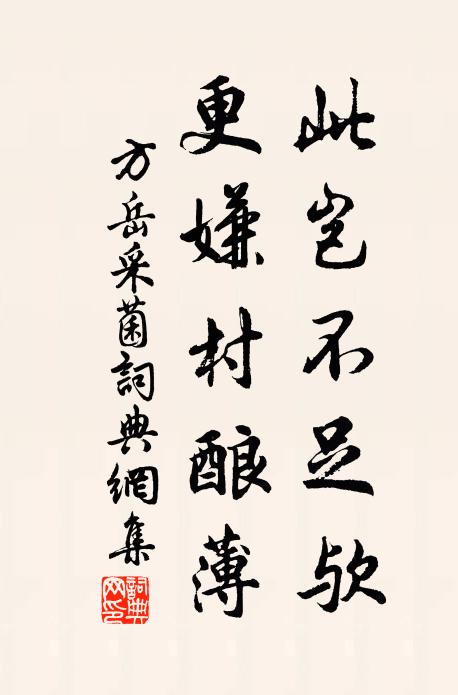 此岂不足欤
更嫌村酿薄
方岳采菌詞典網集
詞典网印